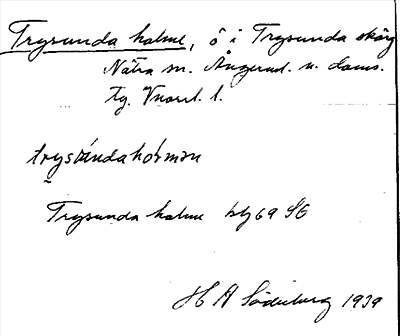 Trysunda holme, ö i Trysunda skärg
Nätra sn. Ångerml. n. doms.
tg. Vnorrl. l.
trysúndahólmən
Trysunda holme bl 69 SO
H A Söderberg 1939